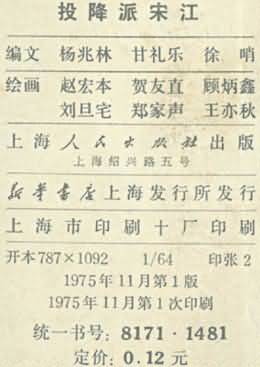 投降派宋江
编文 杨兆林 甘礼乐 徐哨
绘画 赵宏本 贺友直 顾炳鑫
刘旦宅 郑家声 王亦秋
上海人民出版社出版
上海绍兴路五号
新华书店上海发行所发行
上海市印刷十厂印刷
开本787×1092 1/64 印张2
1975年11月第1版
1975年11月第1次印刷
统一书号：8171·1481
定价：0.12元